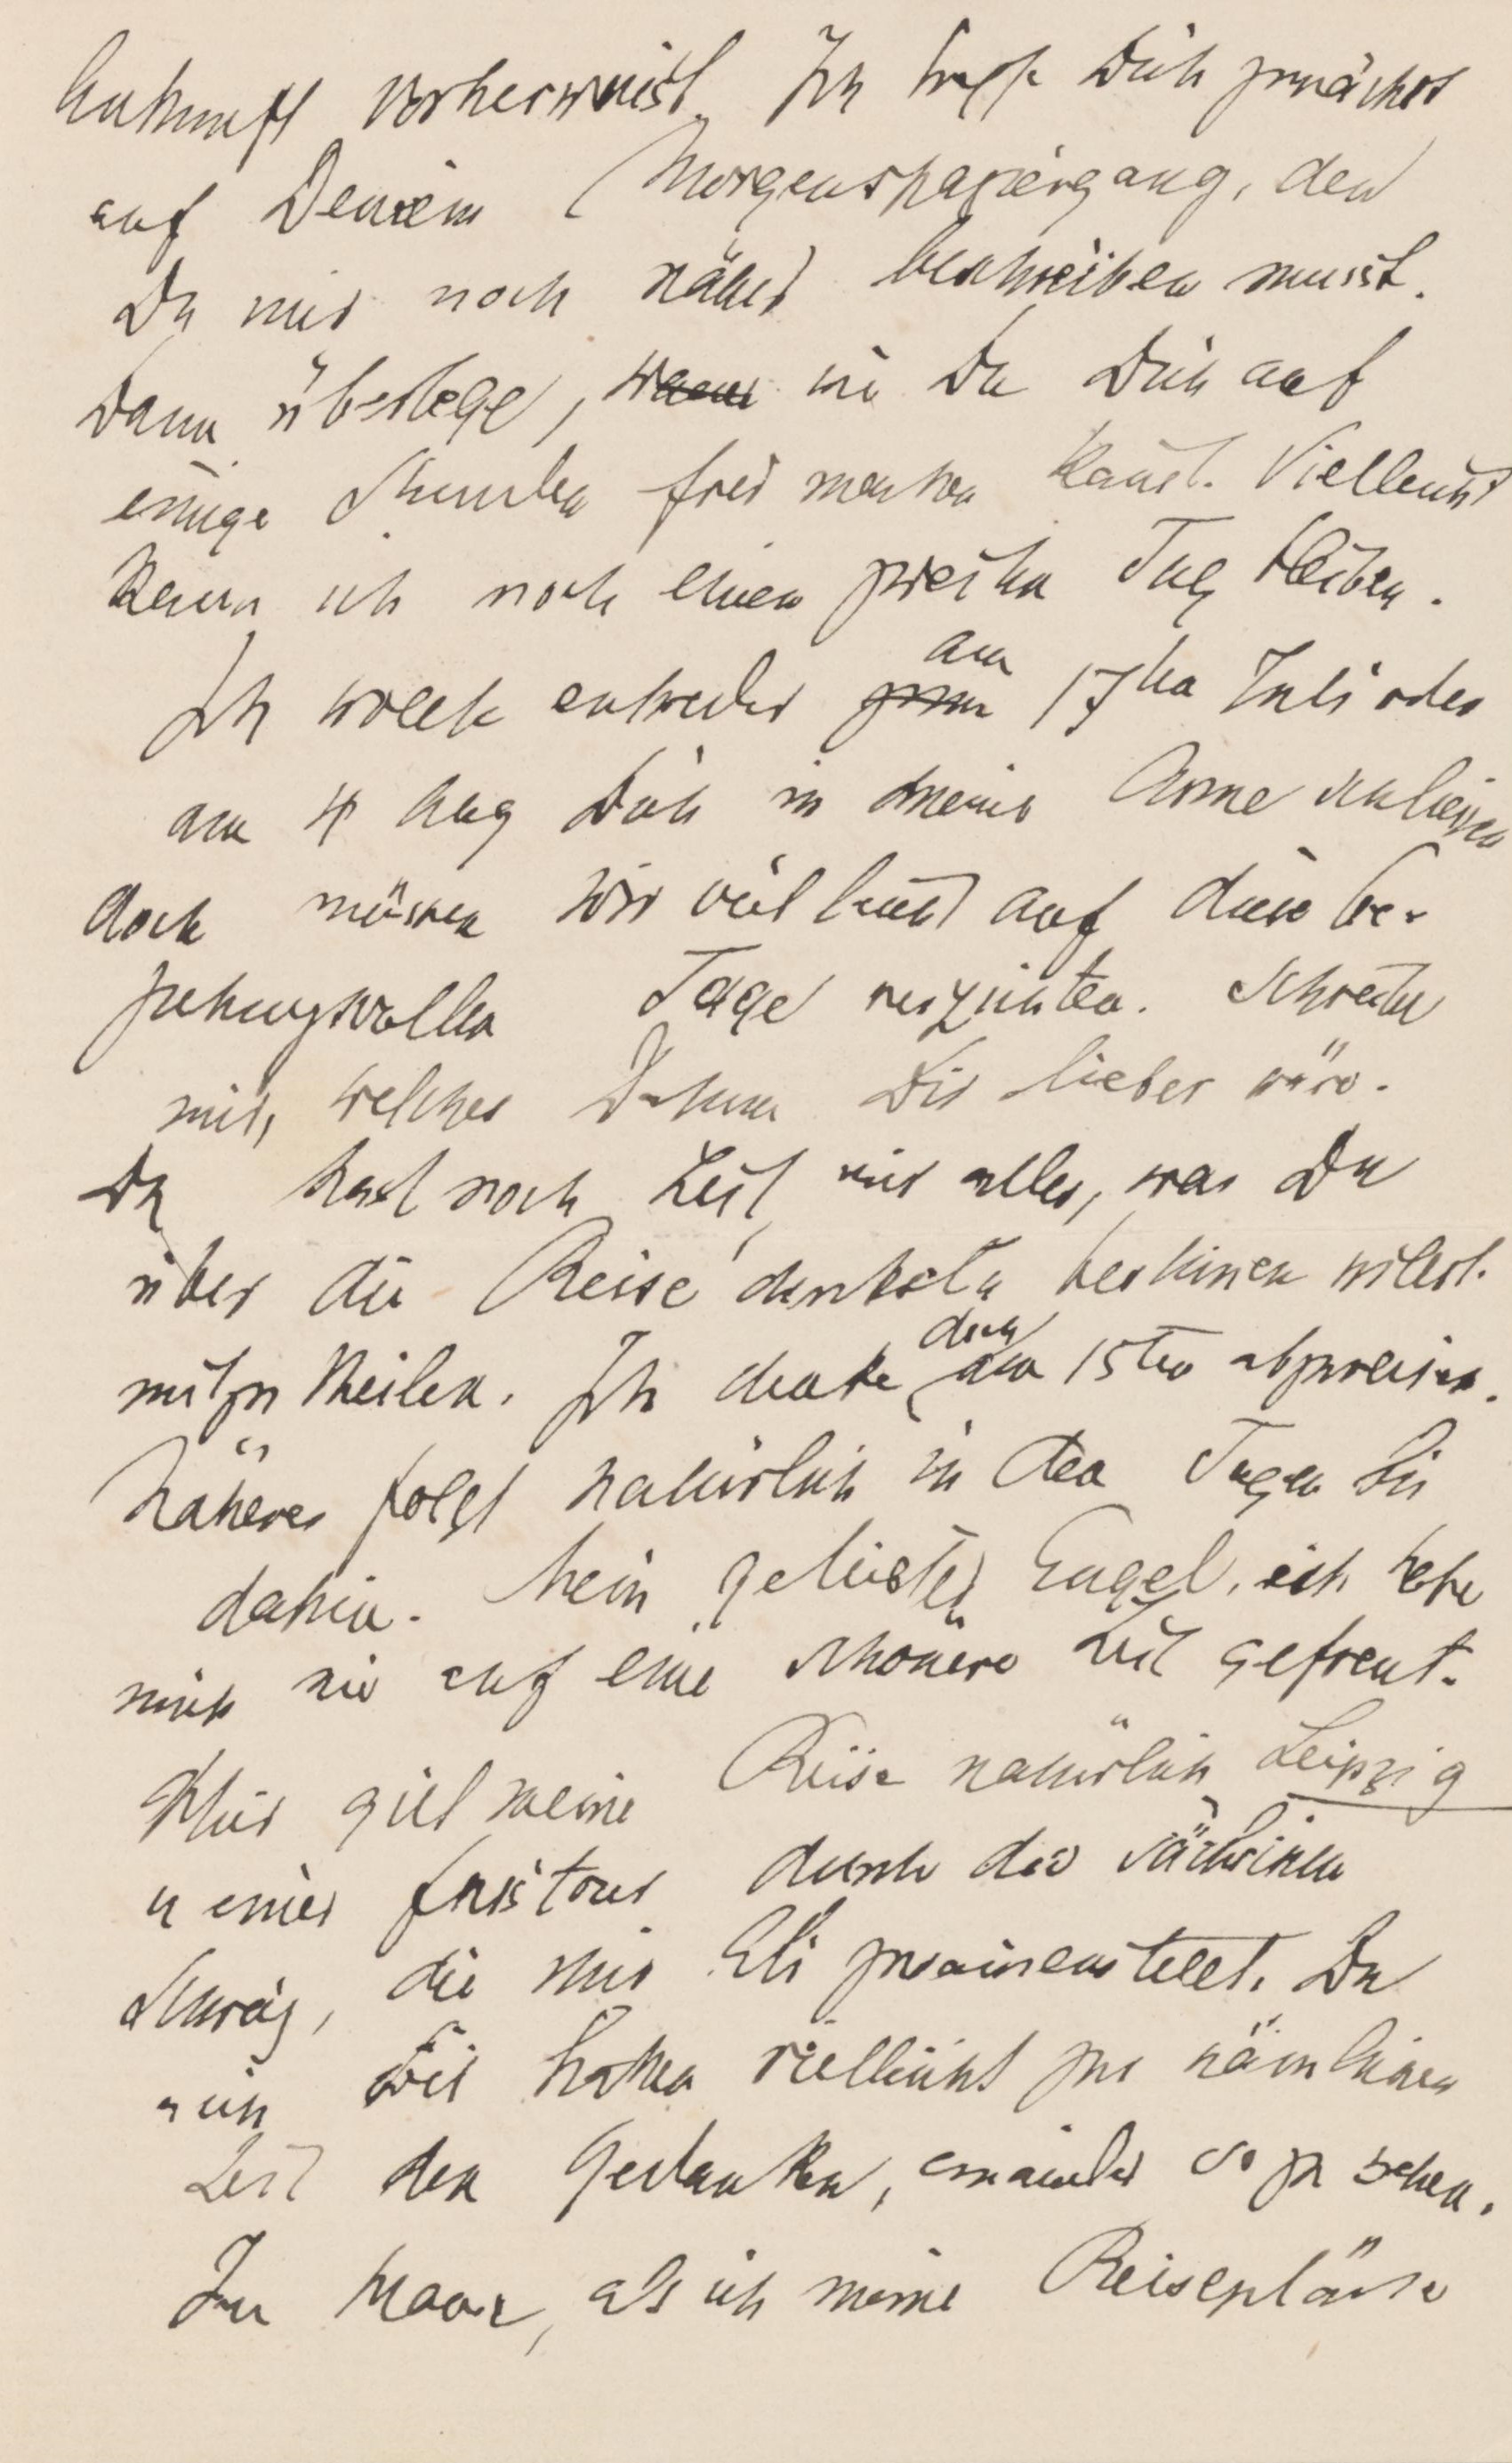 Ankunft vorherweist. Ich treffe Dich zunächst
auf Deinem Morgenspaziergang, den
Du mir noch näher beschreiben musst.
Dann überlege, wann wie Du Dich auf
einige Stunden frei machen kannst. Vielleicht
kann ich noch einen zweiten Tag bleiben.
Ich wollte entweder zum am 17ten Juli oder
am 4 Aug Dich in meine Arme schliessen
doch müssen wir vielleicht auf diese be-
ziehungsvollen Tage verzichten. Schreibe
mir, welches Datum Dir lieber wäre.
Du hast noch Zeit, mir alles, was Du
über die Reise denkst u bestimmen willst
mitzutheilen. Ich denke doch am 15ten abzureisen.
Näheres folgt natürlich in den Tagen bis
dahin. Mein geliebter Engel, ich habe
mich nie auf eine schönere Zeit gefreut.
Hier gilt meine Reise natürlich Leipzig
u einer Fusstour durch die sächsische
Schweiz, die mir Eli zusammenstellt. Du
u ich wir hatten vielleicht zur nämlichen
Zeit den Gedanken, einander so zu sehen.
Im als ich meine Reisepläne